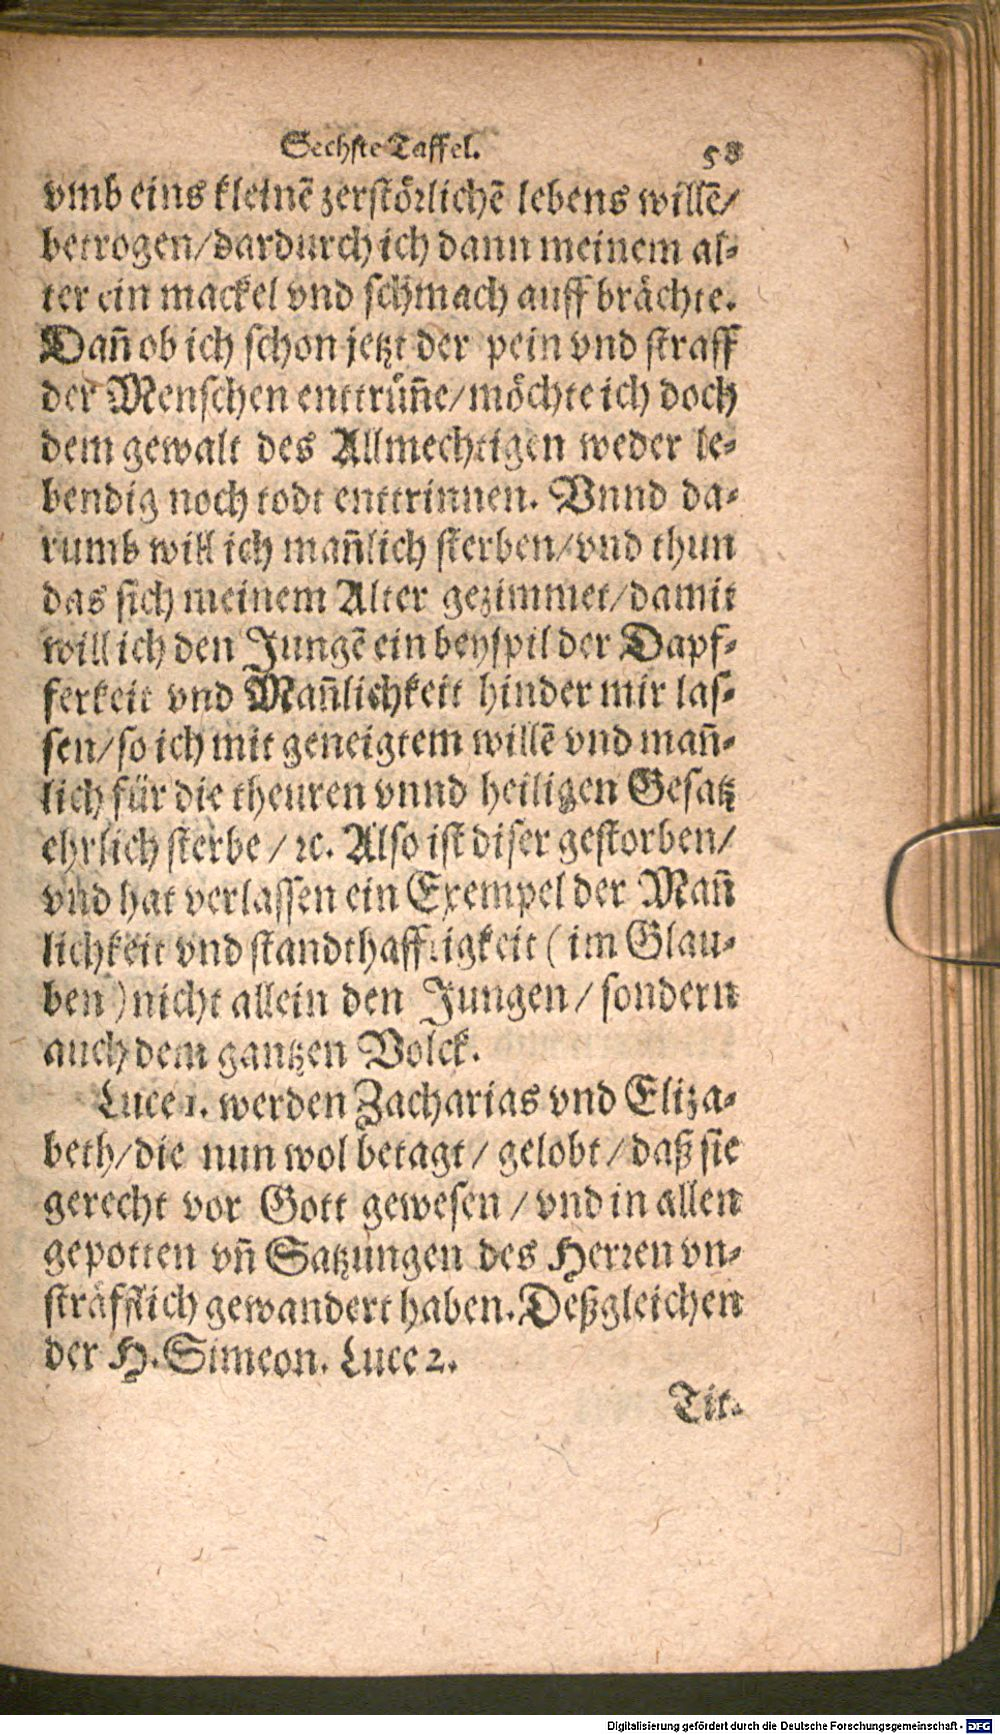 Sechste Taffel. 58
vmb eins kleinẽ zerstörlichẽ lebens willẽ/
betrogen/dardurch ich dann meinem al-
ter ein mackel vnd schmach auff brächte.
Dañ ob ich schon jetzt der pein vnd straff
der Menschen enttrüñe/möchte ich doch
dem gewalt des Allmechtigen weder le-
bendig noch todt enttrinnen. Vnnd da-
rumb will ich mañlich sterben/vnd thun
das sich meinem Alter gezimmet/damit
will ich den Jungẽ ein beyspil der Dapf-
ferkeit vnd Mañlichkeit hinder mir las-
sen/so ich mit geneigtem willẽ vnd mañ-
lich für die theuren vnnd heiligen Gesatz
ehrlich sterbe/ ꝛc. Also ist diser gestorben/
vnd hat verlassen ein Exempel der Mañ
lichkeit vnd standthafftigkeit (im Glau-
ben) nicht allein den Jungen/ sondern
auch dem gantzen Volck.
Luce 1. werden Zacharias vnd Eliza-
beth/die nun wol betagt/ gelobt/ daß sie
gerecht vor Gott gewesen/ vnd in allen
gepotten vñ Satzungen des Herren vn-
sträfflich gewandert haben. Deßgleichen
der H. Simeon. Luce 2.
Tit.
Digitalisierung gefördert durch die Deutsche Forschungsgemeinschaft - DFG